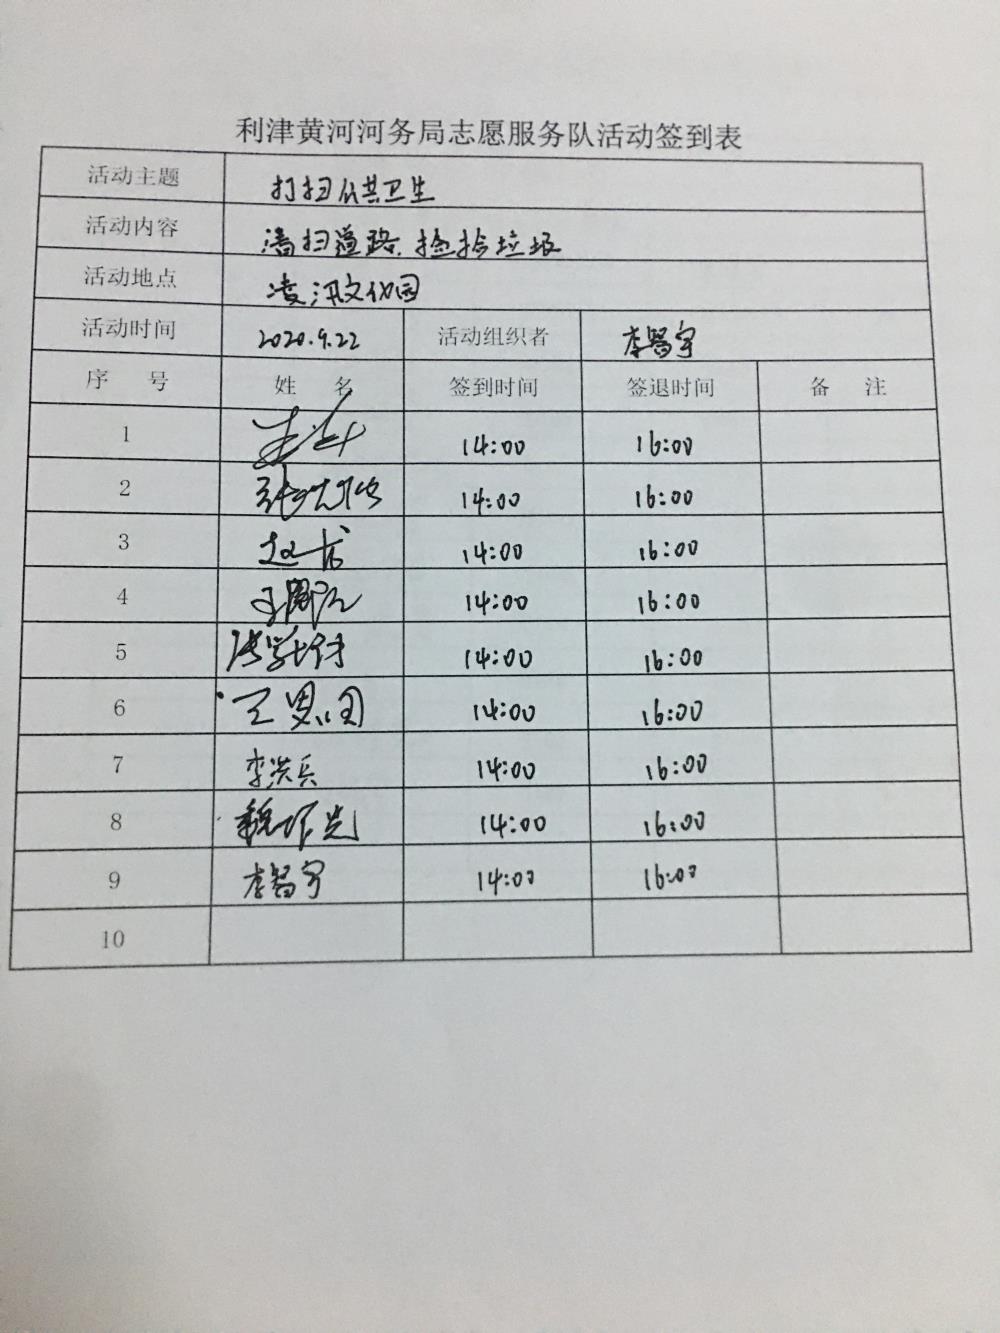 利津黄河河务局志愿服务队活动签到表
活动主题 打扫公共卫生
活动内容 清扫道路、捡拾垃圾
活动地点 凌汛文化园
活动时间 2020.9.22 活动组织者 李智宇
序 号 姓 名 签到时间 签退时间 备 注
1 14:00 16:00
2 14:00 16:00
3 14:00 16:00
4 14:00 16:00
5 14:00 16:00
6 王 14:00 16:00
7 李洪兵 14:00 16:00
8 14:00 16:00
9 李智宇 14:00 16:00
10